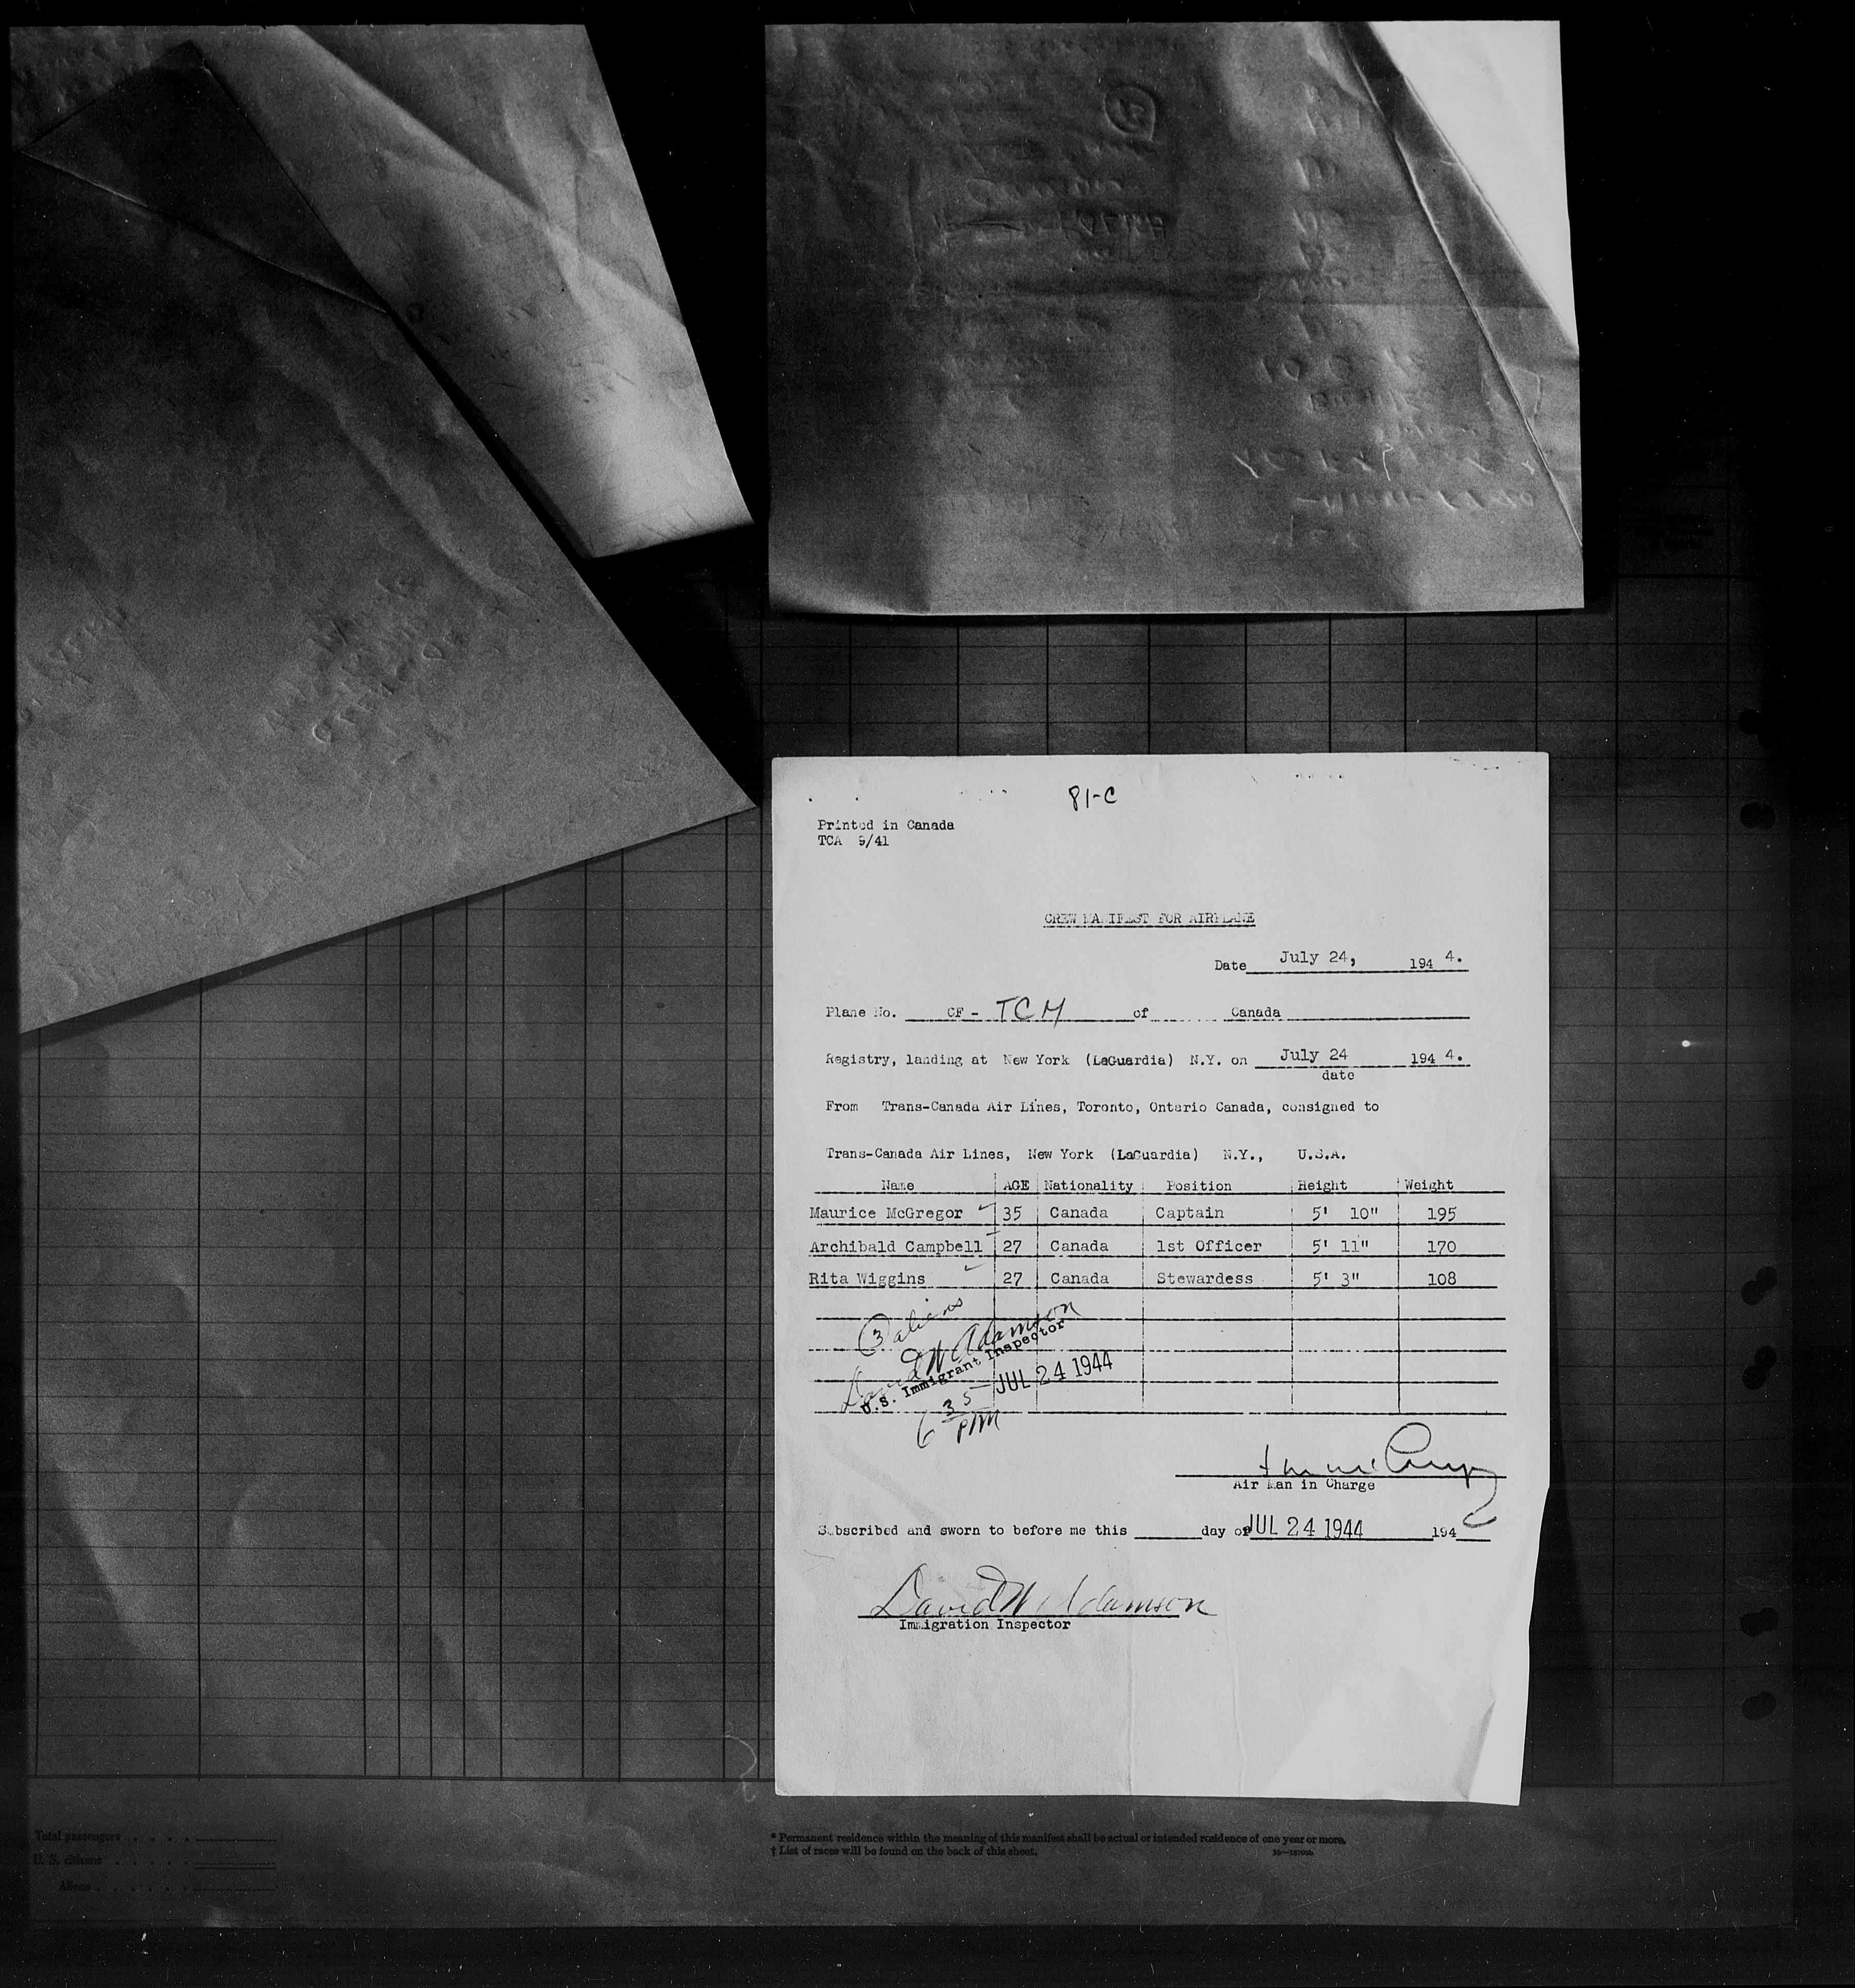 81-C
Printed in Canada
TCA 9/41
CREW MANIFEST FOR AIRPLANE
Date July 24, 194 4.
Plane No. CF - TCM of Canada
Registry, landing at New York (LaGuardia) N.Y. on July 24 194 4.
date
From Trans-Canada Air Lines, Toronto, Ontario Canada, consigned to
Trans-Canada Air Lines, New York (LaGuardia) N.Y., U.S.A.
Name AGE Nationality Position Height Weight
Maurice McGregor 35 Canada Captain 5' 10" 195
Archibald Campbell 27 Canada 1st Officer 5' 11" 170
Rita Wiggins 27 Canada Stewardess 5' 3" 108
3 aliens
David W Adamson
U.S. Immigrant Inspector
JUL 24 1944
6 35 PM
Air Man in Charge
Subscribed and sworn to before me this day of JUL 24 1944 194
David W Adamson
Immigration Inspector
Total passengers
U. S. citizens
Aliens
* Permanent residence within the meaning of this manifest shall be actual or intended residence of one year or more.
† List of races will be found on the back of this sheet.